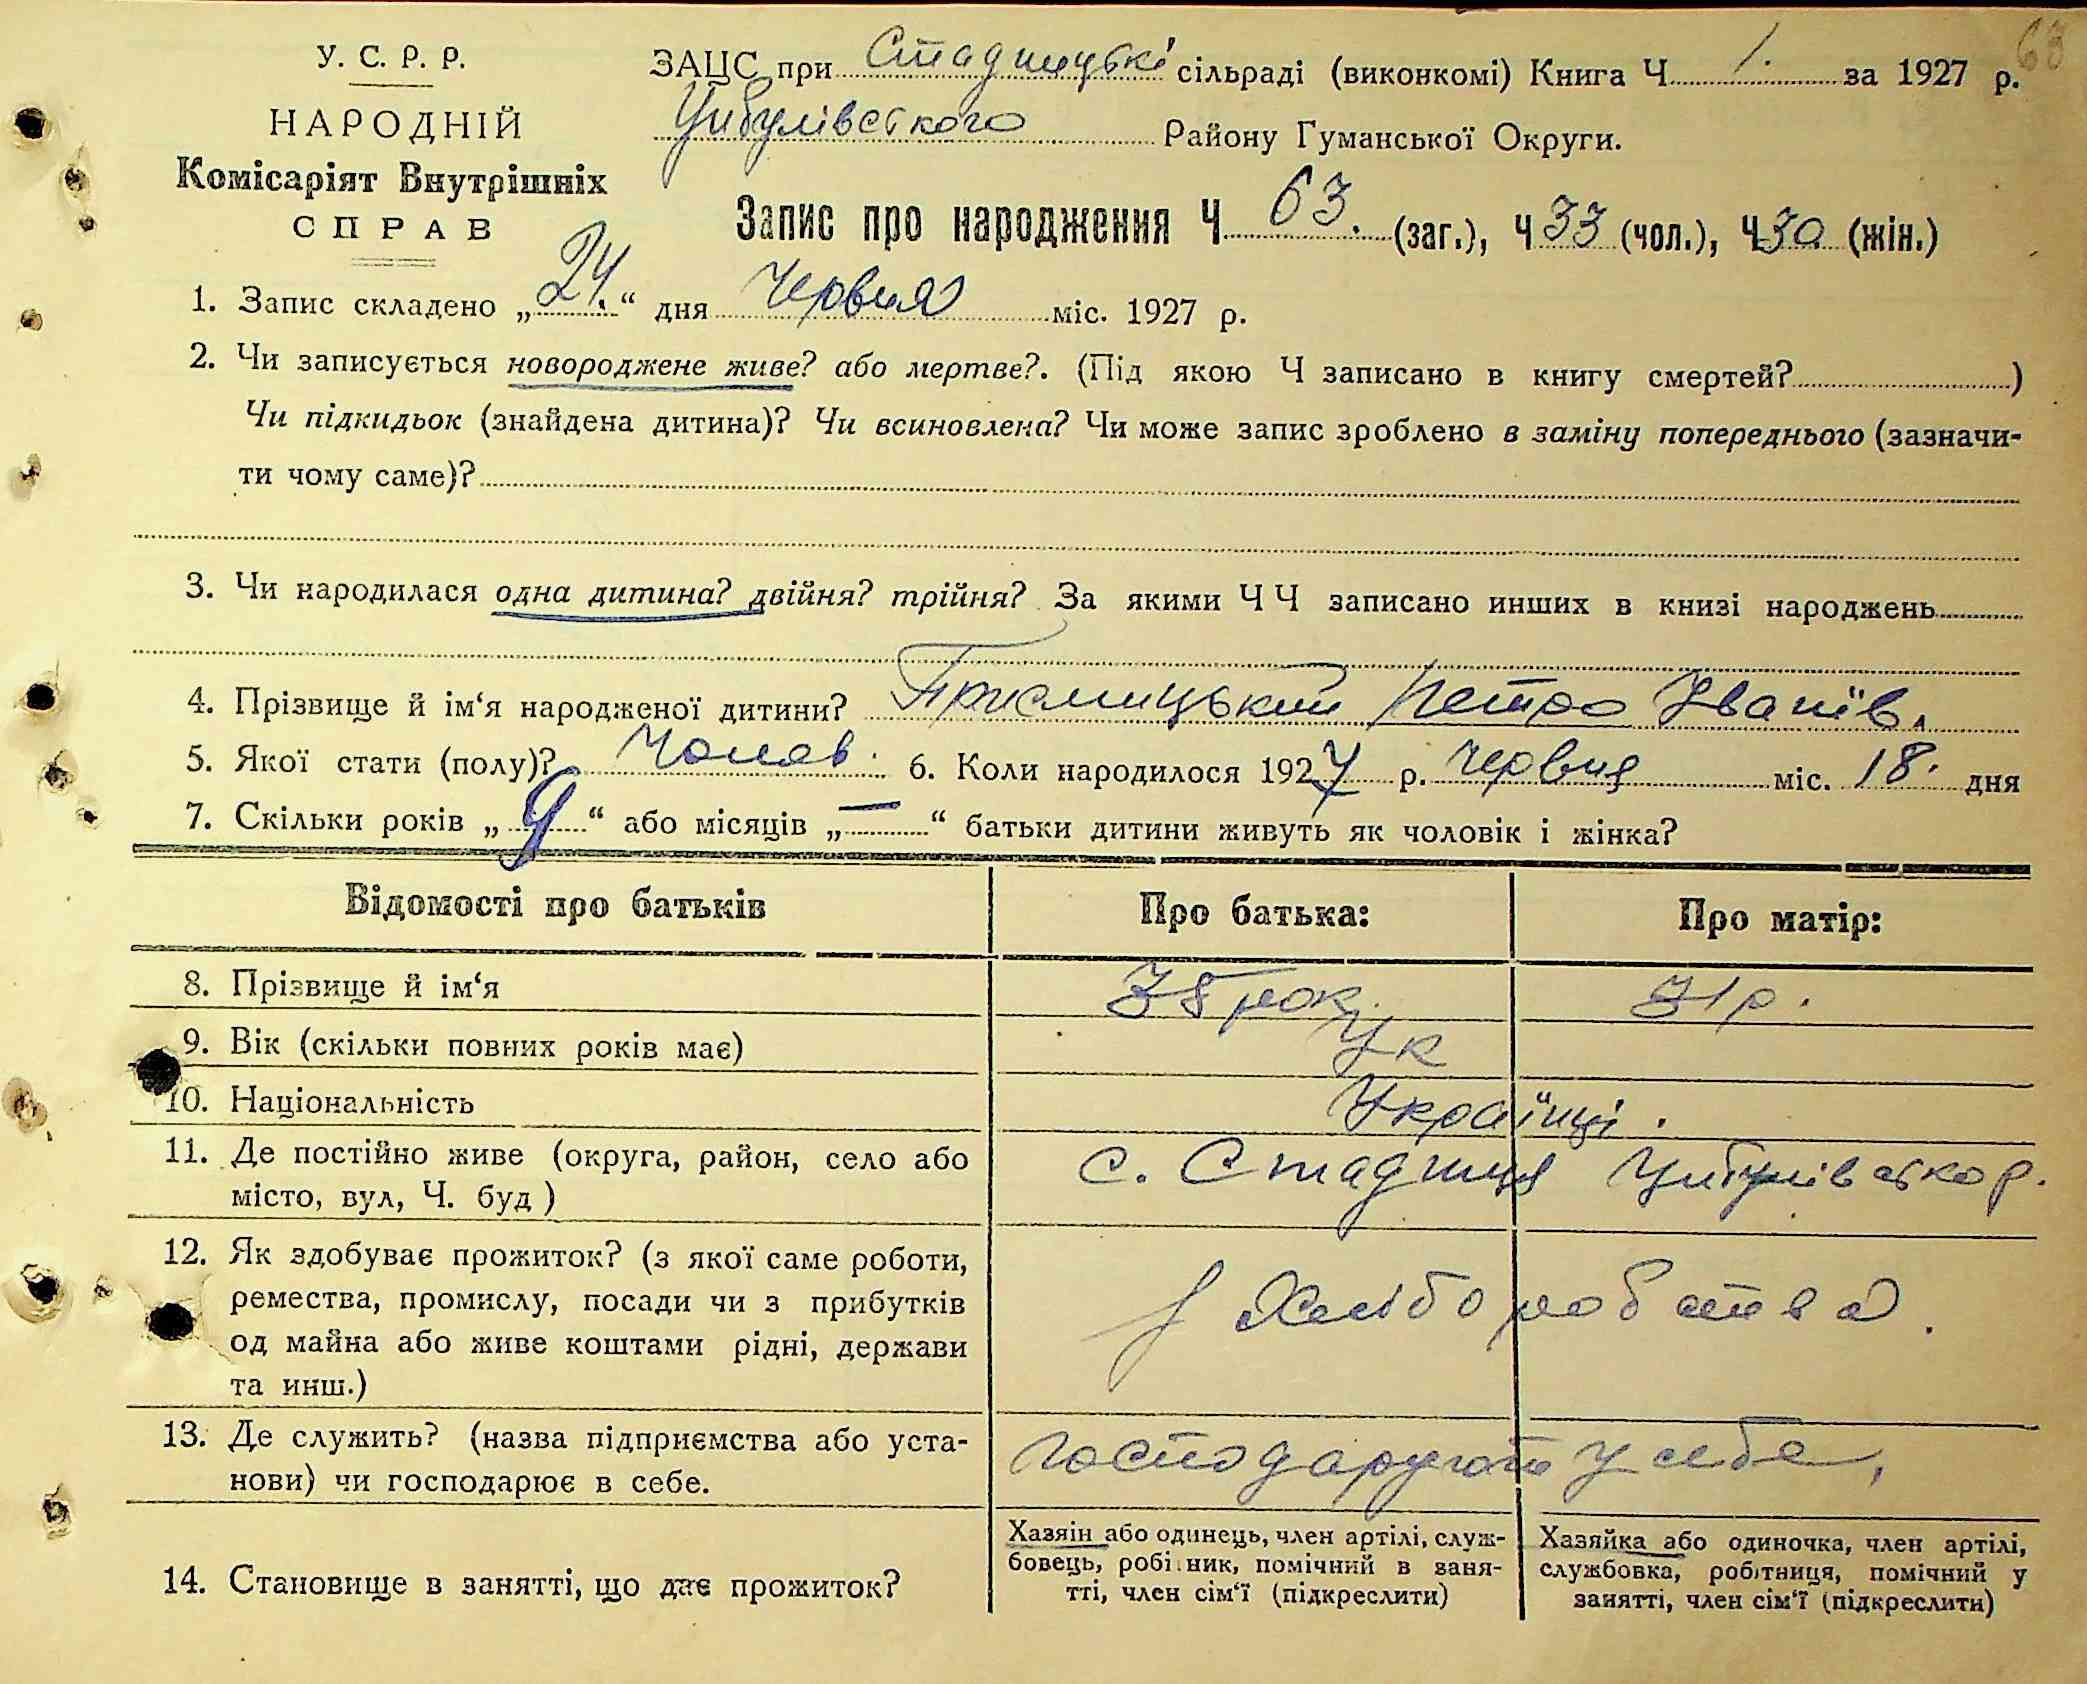 68
У. С. Р. Р.
НАРОДНІЙ
Комісаріят Внутрішніх
СПРАВ
ЗАЦС при Стадницькі сільраді (виконкомі) Книга Ч 1. за 1927 р.
Цибулівського Району Гуманської Округи.
Запис про народження Ч 63. (заг.), Ч 33 (чол.), Ч 30 (жін.)
1. Запис складено „24.“ дня Червня міс. 1927 р.
2. Чи записується новороджене живе? або мертве?. (Під якою Ч записано в книгу смертей? )
Чи підкидьок (знайдена дитина)? Чи всиновлена? Чи може запис зроблено в заміну попереднього (зазначи-
ти чому саме)?
3. Чи народилася одна дитина? двійня? трійня? За якими Ч Ч записано инших в книзі народжень
4. Прізвище й ім‘я народженої дитини? Петро Іванів.
5. Якої стати (полу)? Чолов. 6. Коли народилося 1927 р. Червня міс. 18. дня
7. Скільки років „9“ або місяців „—“ батьки дитини живуть як чоловік і жінка?
Відомості про батьків
Про батька:
Про матір:
8. Прізвище й ім‘я
38 рок.
31 р.
9. Вік (скільки повних років має)
Ук
10. Національність
Українці.
11. Де постійно живе (округа, район, село або
місто, вул, Ч. буд )
с. Стадниця Цибулівсько р.
12. Як здобуває прожиток? (з якої саме роботи,
ремества, промислу, посади чи з прибутків
од майна або живе коштами рідні, держави
та инш.)
Хліборобства.
13. Де служить? (назва підприємства або уста-
нови) чи господарює в себе.
господарують у себе,
14. Становище в занятті, що дає прожиток?
Хазяін або одинець, член артілі, служ-
бовець, робітник, помічний в заня-
тті, член сім‘ї (підкреслити)
Хазяйка або одиночка, член артілі,
службовка, робітниця, помічний у
занятті, член сім‘ї (підкреслити)